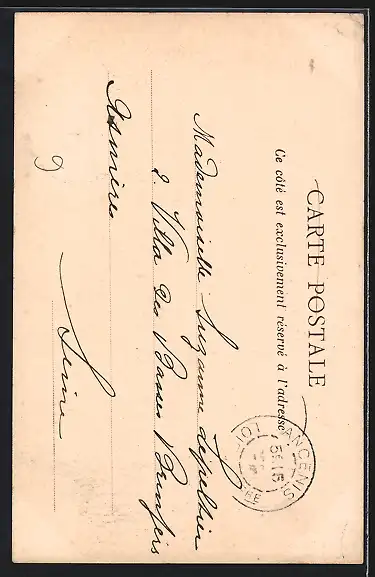 CARTE POSTALE
Ce côté est exclusivement réservé à l'adresse
ANCENIS
5E 15
Mademoiselle Suzanne Lepeltier
2. Villa des Basses Bruyères
Asnières
Seine
9